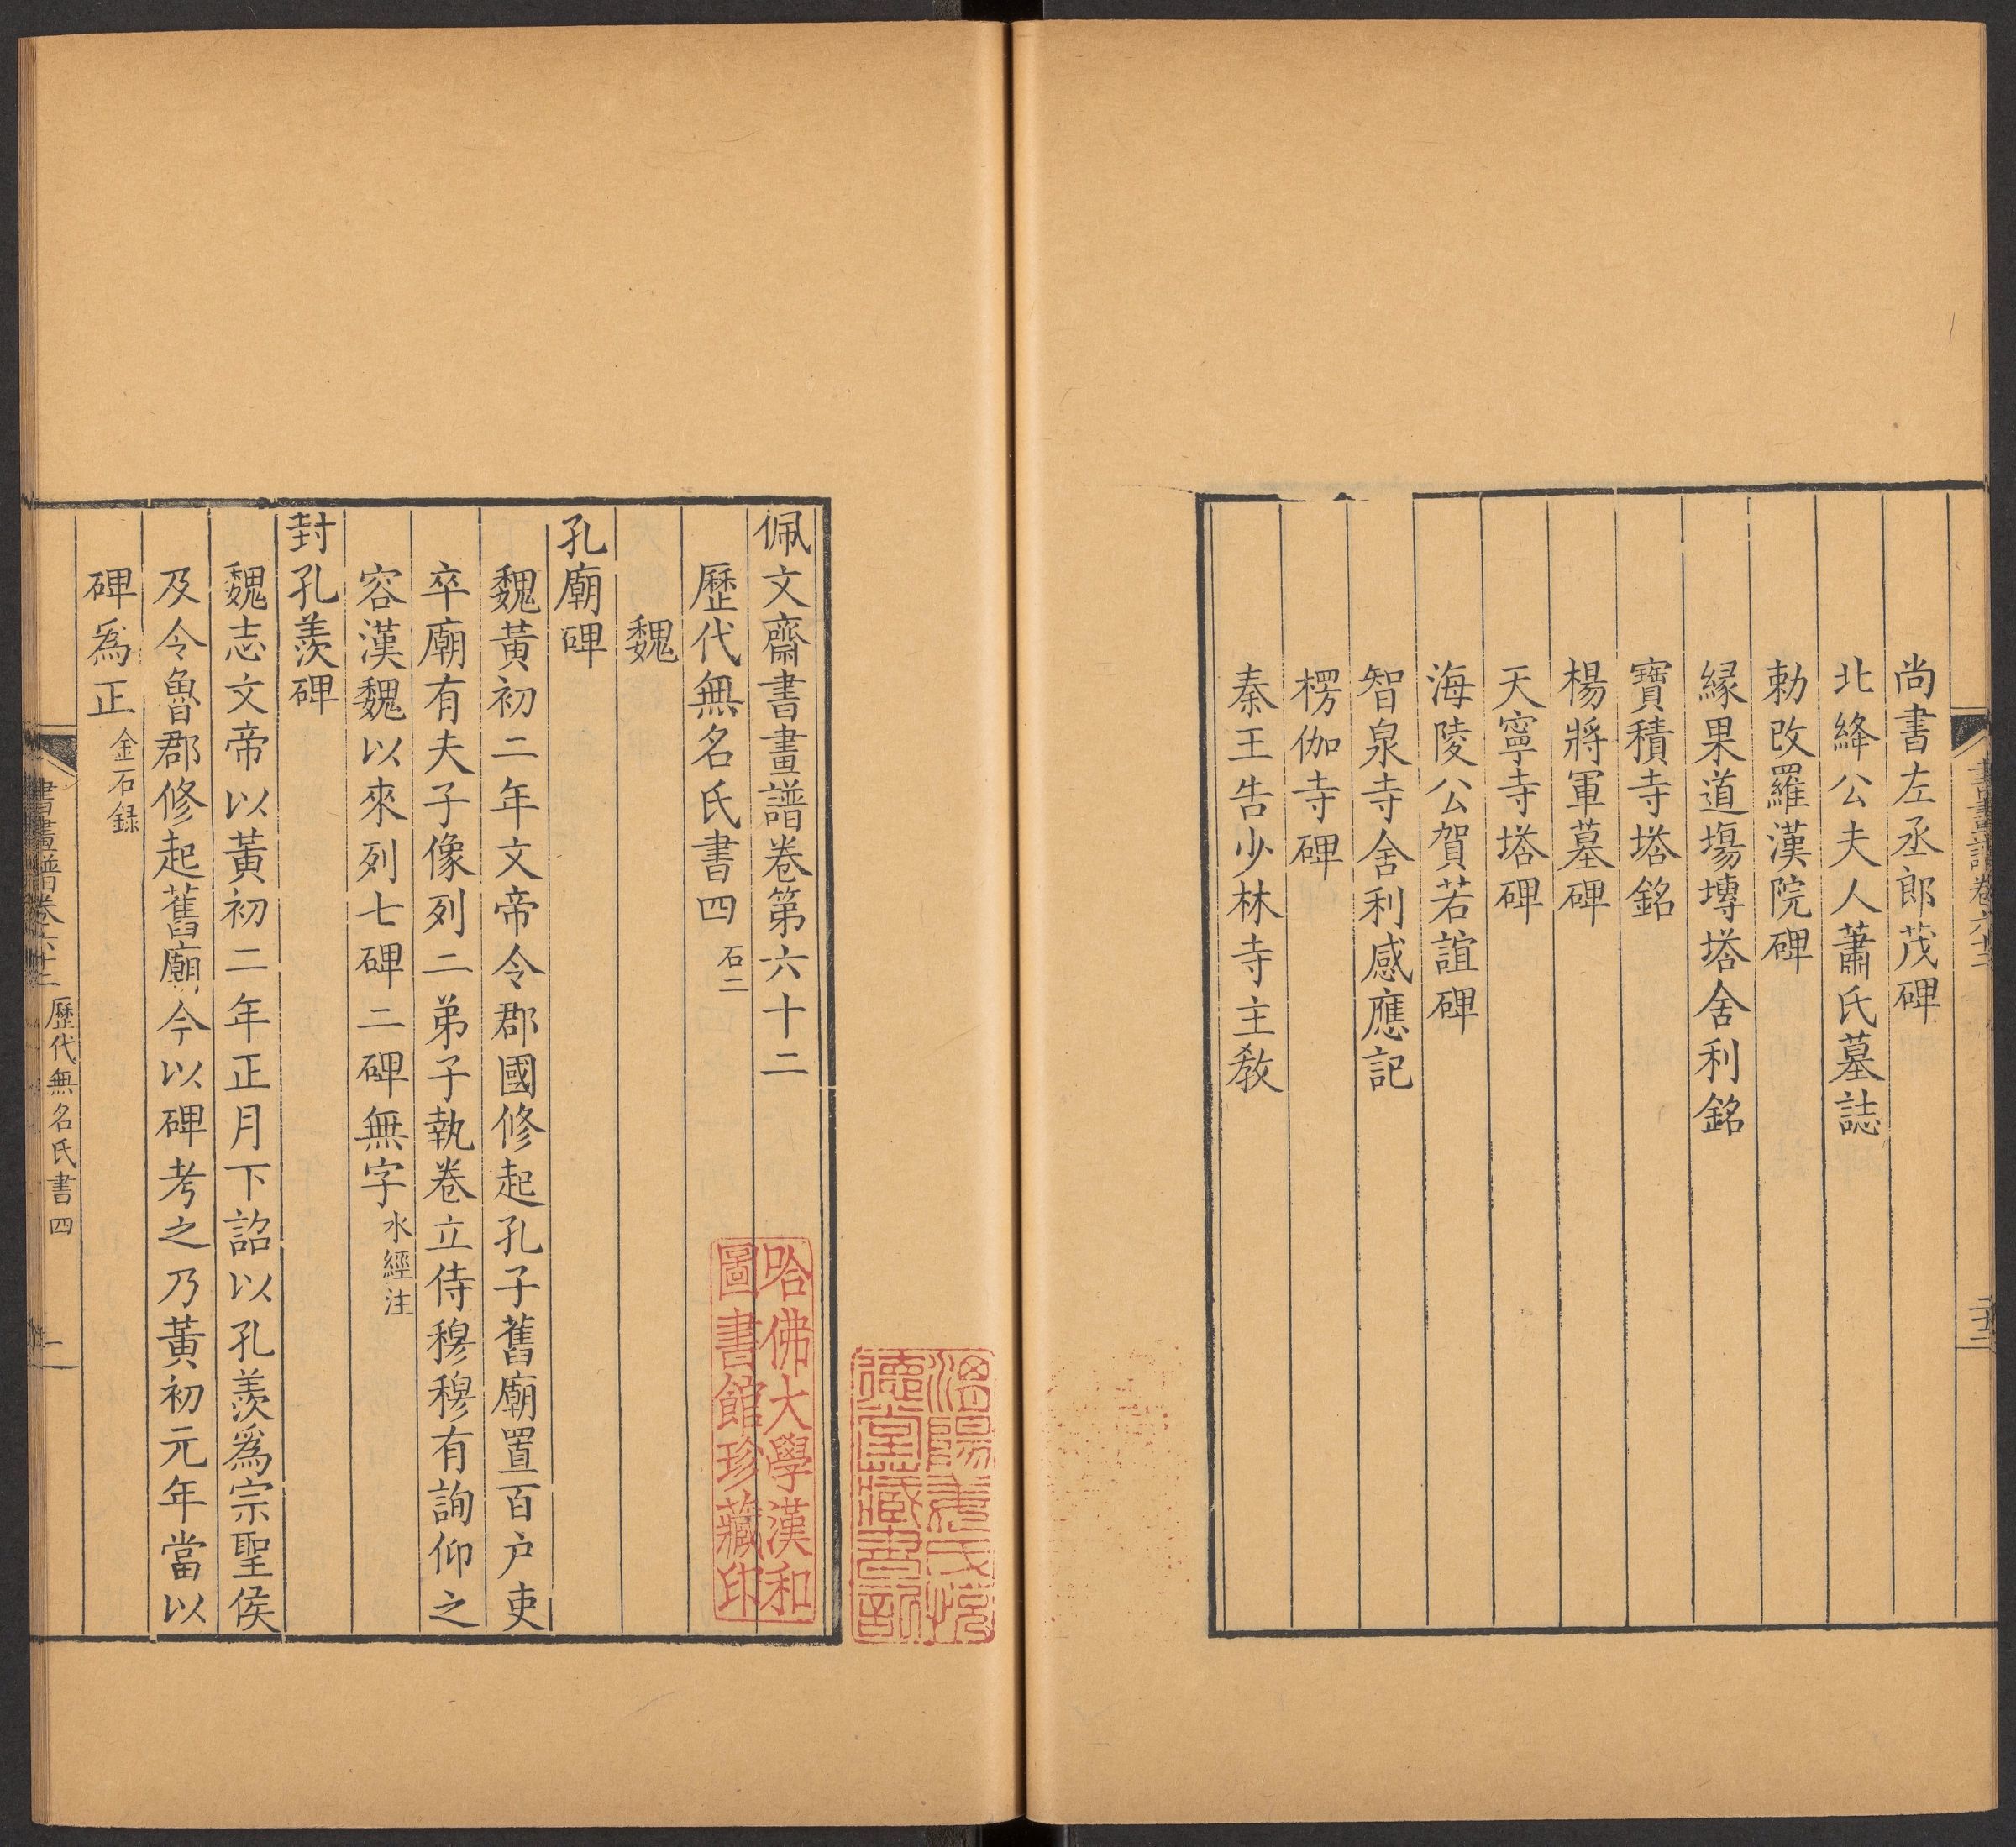 尚書左丞郎茂碑
北絳公夫人蕭氏墓誌
勅改羅漢院碑
緣果道場塼塔舍利銘
寶積寺塔銘
楊將軍墓碑
天寧寺塔碑
海陵公賀若誼碑
智泉寺舍利感應記
楞伽寺碑
秦王告少林寺主教
佩文齋書畫譜卷第六十二
歷代無名氏書四 石二
魏
孔廟碑
魏黃初二年文帝令郡國修起孔子舊廟置百户吏
卒廟有夫子像列二弟子執卷立侍穆穆有詢仰之
容漢魏以來列七碑二碑無字 水經注
封孔羨碑
魏志文帝以黃初二年正月下詔以孔羨爲宗聖侯
及令魯郡修起舊廟今以碑考之乃黃初元年當以
碑爲正 金石録
書畫譜卷六十二 歷代無名氏書四 一
哈佛大學漢和
圖書館珍藏印
德堂藏書記